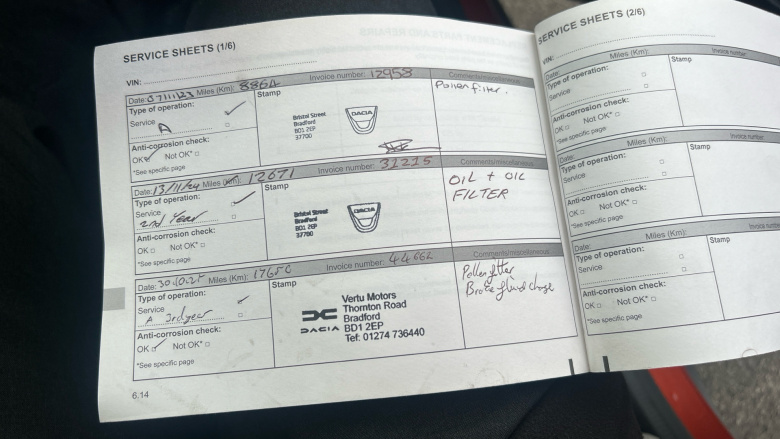 SERVICE SHEETS (1/6)
VIN:
Date: 07/11/23 Miles (Km): 8864 Invoice number: 12958 Comments/miscellaneous
Type of operation:
Service
A
Anti-corrosion check:
OK Not OK*
*See specific page
Stamp
Bristol Street
Bradford
BD1 2EP
37700
DACIA
Pollen filter.
Date: 13/11/24 Miles (Km): 12671 Invoice number: 31215 Comments/miscellaneous
Type of operation:
Service
2nd Year
Anti-corrosion check:
OK Not OK*
*See specific page
Stamp
Bristol Street
Bradford
BD1 2EP
37700
DACIA
OIL + OIL
FILTER
Date: 30.10.25 Miles (Km): 17650 Invoice number: 44662 Comments/miscellaneous
Type of operation:
Service
A 3rd year
Anti-corrosion check:
OK Not OK*
*See specific page
Stamp
DACIA
Vertu Motors
Thornton Road
Bradford
BD1 2EP
Tel: 01274 736440
Pollen filter
Brake fluid change
6.14
SERVICE SHEETS (2/6)
VIN:
Date: Miles (Km): Invoice number
Type of operation:
Service
Anti-corrosion check:
OK Not OK*
*See specific page
Stamp
Date: Miles (Km): Invoice number
Type of operation:
Service
Anti-corrosion check:
OK Not OK*
*See specific page
Stamp
Date: Miles (Km): Invoice number
Type of operation:
Service
Anti-corrosion check:
OK Not OK*
*See specific page
Stamp